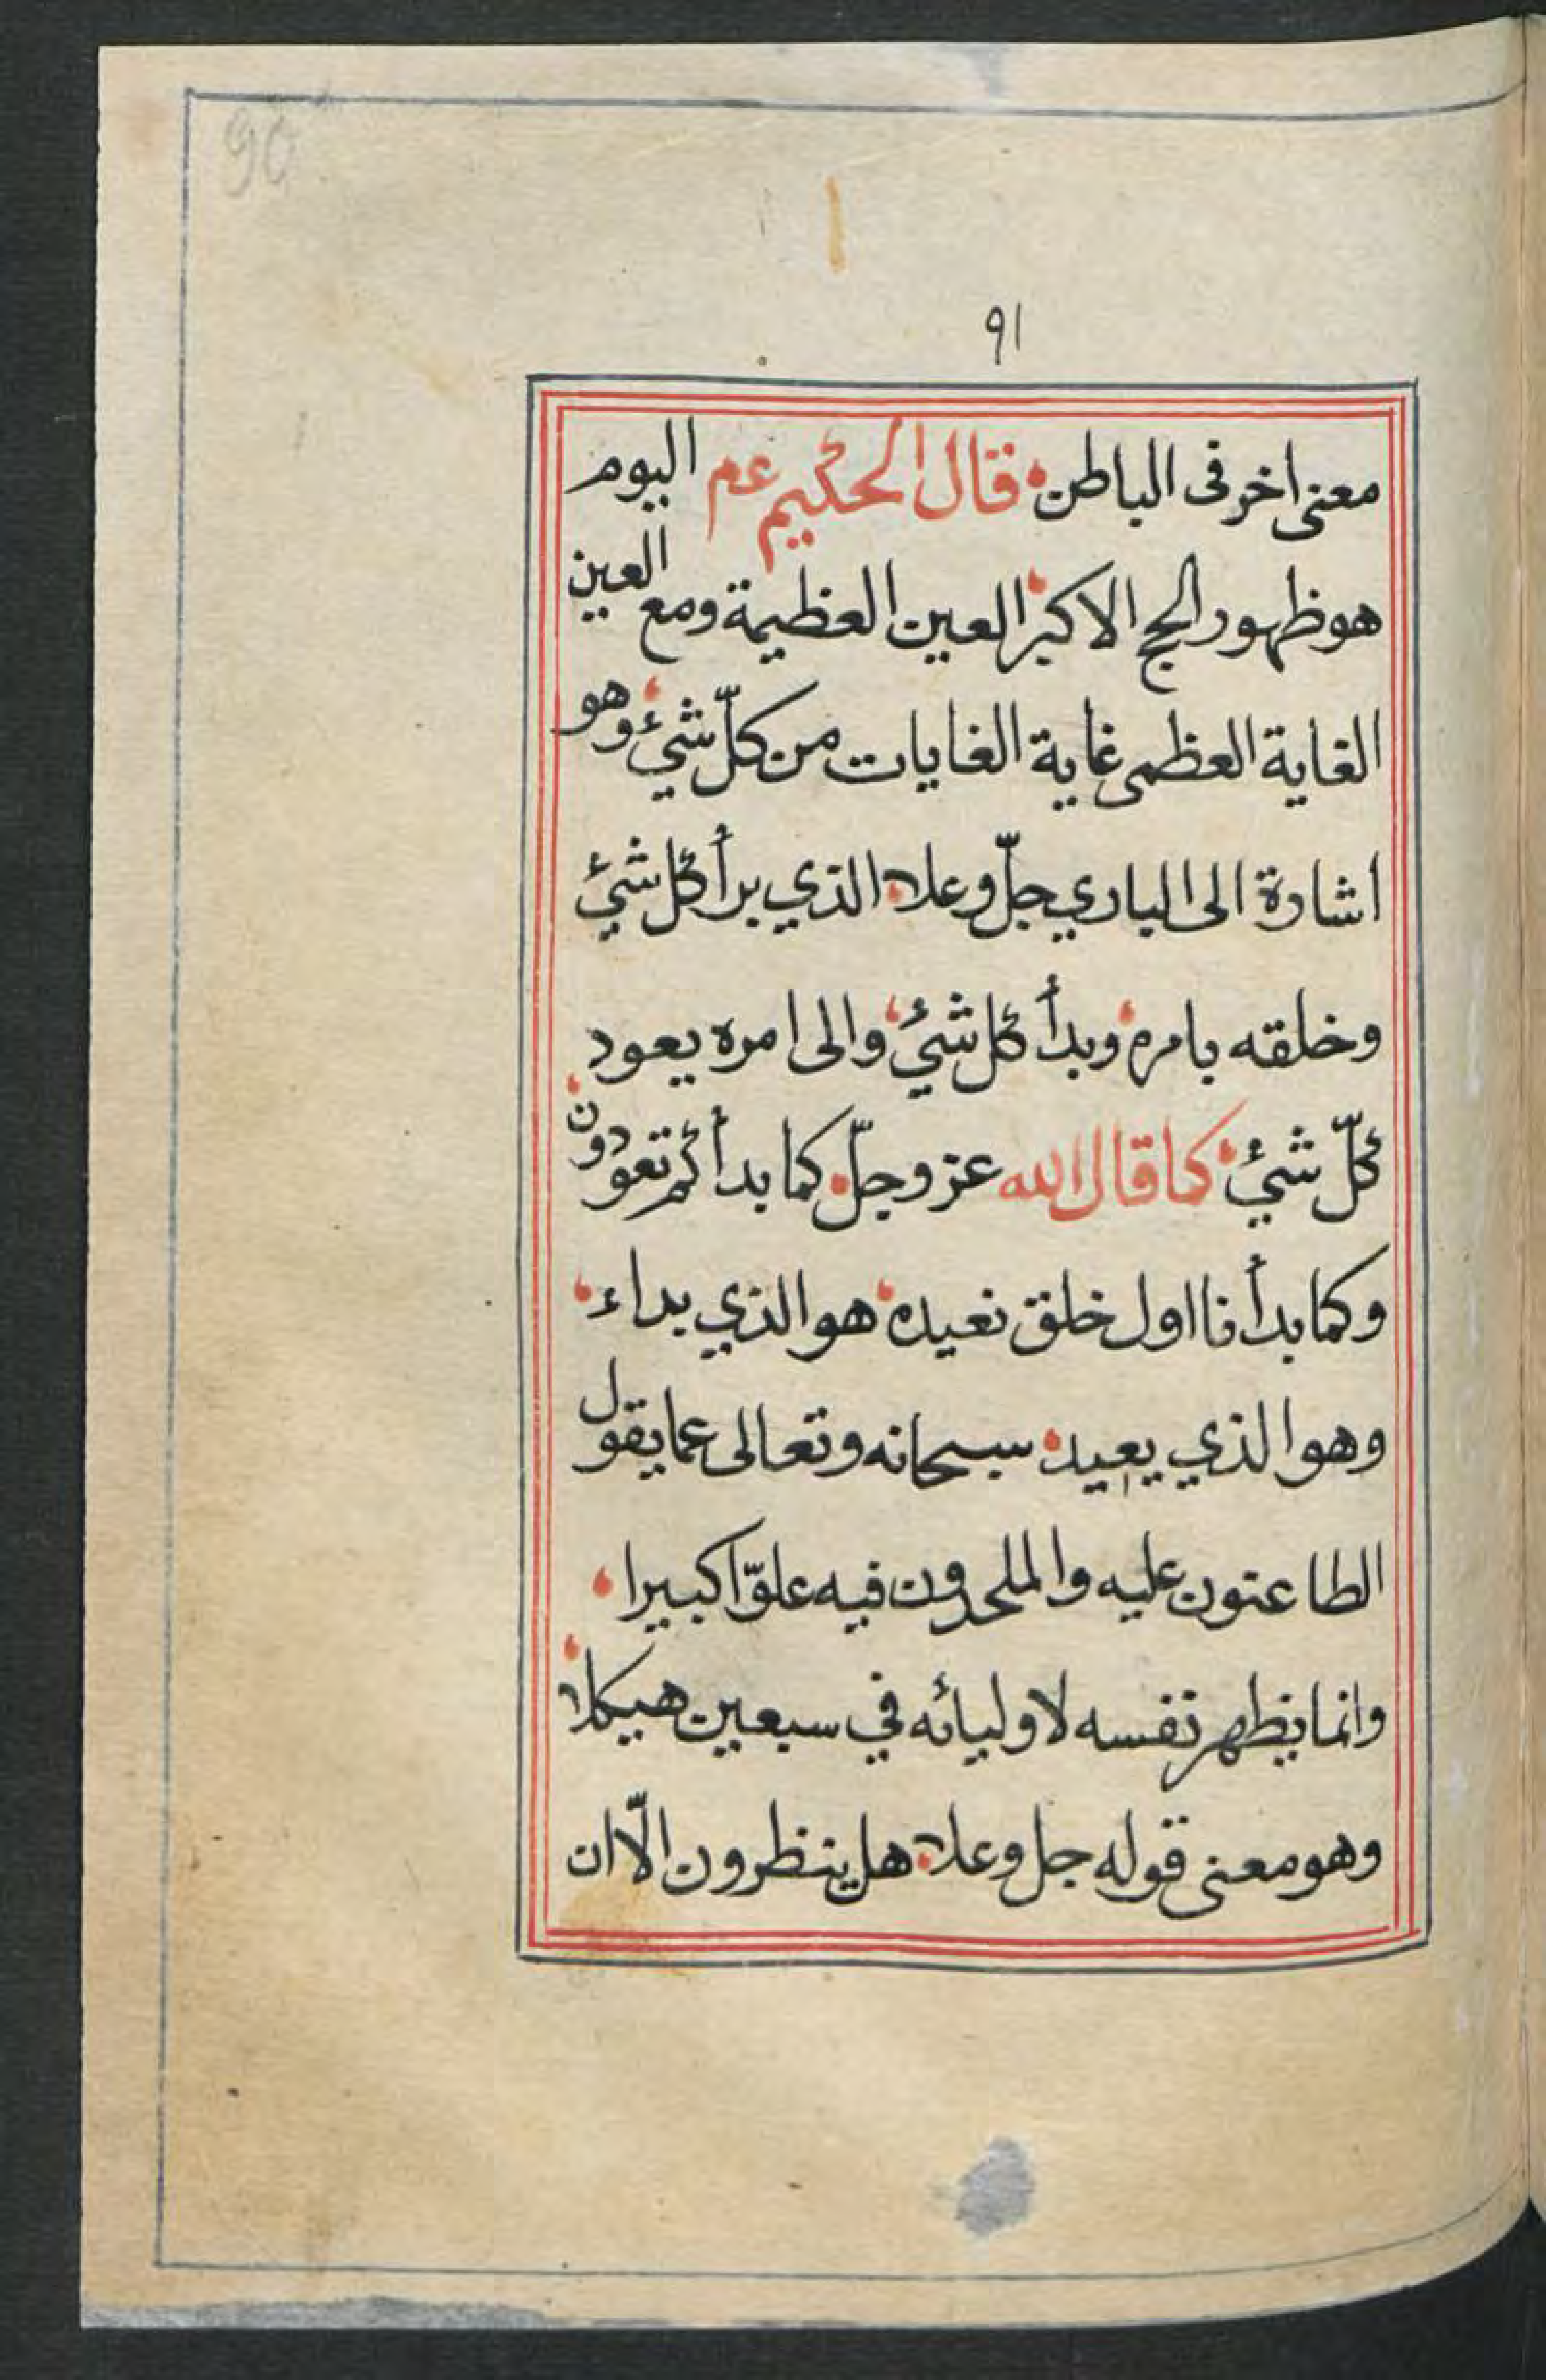 90
٩١
معنى اخر فى الباطن قال الحكيم عم اليوم
هو ظهور الحج الاكبر العين العظيمة ومع العين
الغاية العظمى غاية الغايات من كلّ شيء وهو
اشارة الى الباري جلّ وعلا الذي برأ كل شئ
وخلقه بامره وبدأ كل شئ والى امره يعود
كلّ شئ كما قال الله عز وجلّ كما بدأكم تعودون
وكما بدأنا اول خلق نعيده هو الذي بداء
وهو الذي يعيد سبحانه وتعالى عما يقول
الطاعنون عليه والملحدون فيه علوّا كبيرا
وانما يظهر نفسه لاوليائه في سبعين هيكلا
وهو معنى قوله جل وعلا هل ينظرون الّا ان